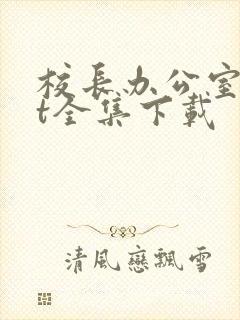 校長办公室
t全集下載
清風戀飄雪